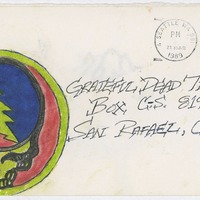 SEATTLE WA
PM
1989
GRATEFUL DEAD
BOX C.S. 81
SAN RAFAEL, C